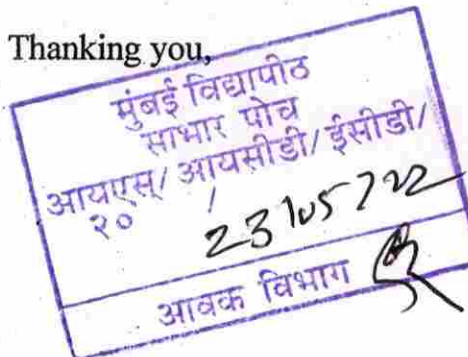 Thanking you,
मुंबई विद्यापीठ
साभार पोच
आयएस्/ आयसीडी/ ईसीडी/
२० /
23/05/22
आवक विभाग